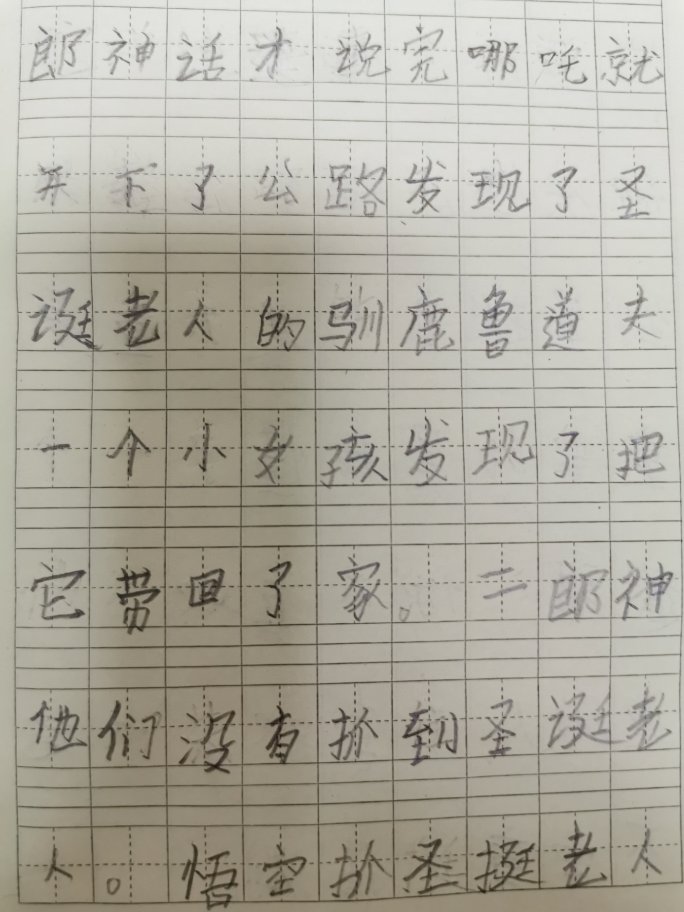 郎神话才说完哪吒就
开下了公路发现了圣
诞老人的驯鹿鲁道夫
一个小女孩发现了把
它带回了家。二郎神
他们没有抓到圣诞老
人。悟空抓圣挺老人